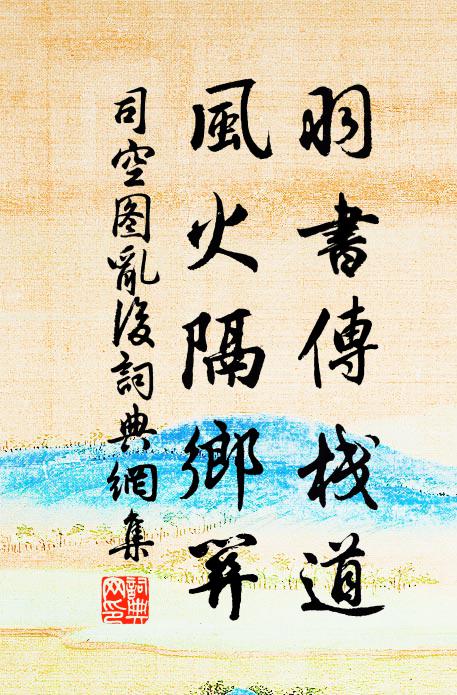 羽書傳栈道
風火隔鄉關
司空图亂後詞典網集
詞典网印